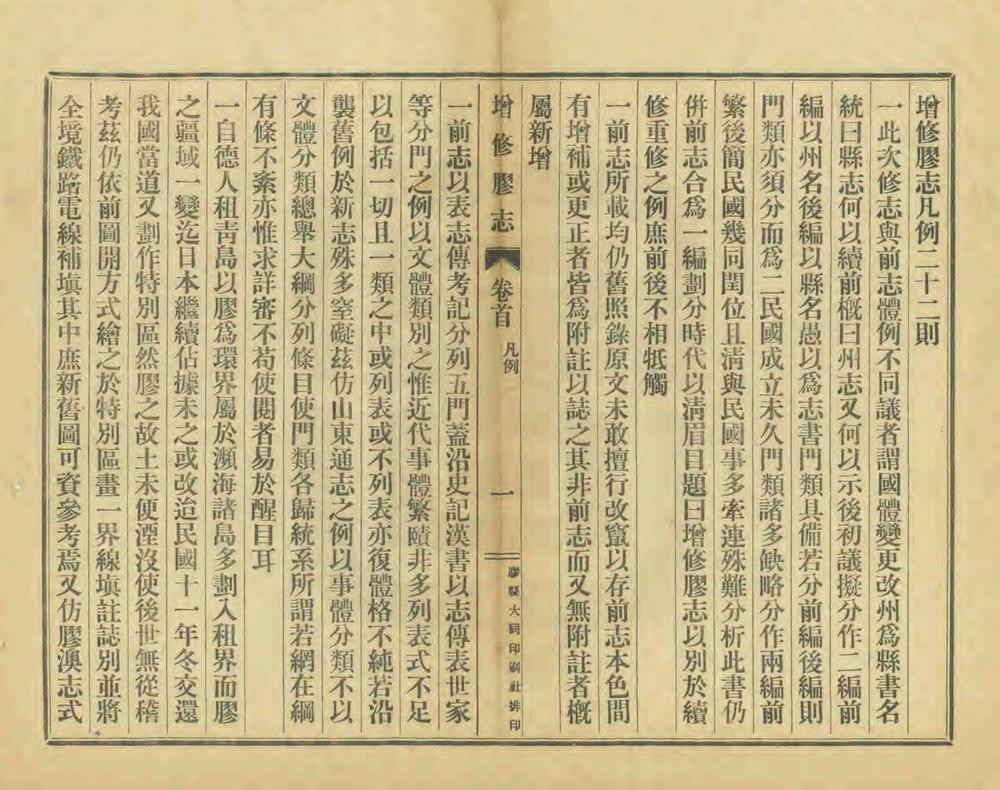 增修膠志凡例二十二則
一此次修志與前志體例不同議者謂國體變更改州爲縣書名
統曰縣志何以續前概曰州志又何以示後初議擬分作二編前
編以州名後編以縣名愚以爲志書門類具備若分前編後編則
門類亦須分而爲二民國成立未久門類諸多缺略分作兩編前
繁後簡民國幾同閏位且淸與民國事多牽連殊難分析此書仍
倂前志合爲一編劃分時代以淸眉目題曰增修膠志以別於續
修重修之例庶前後不相牴觸
一前志所載均仍舊照錄原文未敢擅行改竄以存前志本色間
有增補或更正者皆爲附註以誌之其非前志而又無附註者概
屬新增
增修膠志 卷首 凡例 一 膠縣大同印刷社排印
一前志以表志傳考記分列五門蓋沿史記漢書以志傳表世家
等分門之例以文體類別之惟近代事體繁賾非多列表式不足
以包括一切且一類之中或列表或不列表亦復體格不純若沿
襲舊例於新志殊多窒礙茲仿山東通志之例以事體分類不以
文體分類總舉大綱分列條目使門類各歸統系所謂若網在綱
有條不紊亦惟求詳審不苟使閱者易於醒目耳
一自德人租靑島以膠爲環界屬於瀕海諸島多劃入租界而膠
之疆域一變迄日本繼續佔據未之或改迨民國十一年冬交還
我國當道又劃作特別區然膠之故土未便湮沒使後世無從稽
考茲仍依前圖開方式繪之於特別區畫一界線塡註誌別並將
全境鐵路電線補塡其中庶新舊圖可資參考焉又仿膠澳志式